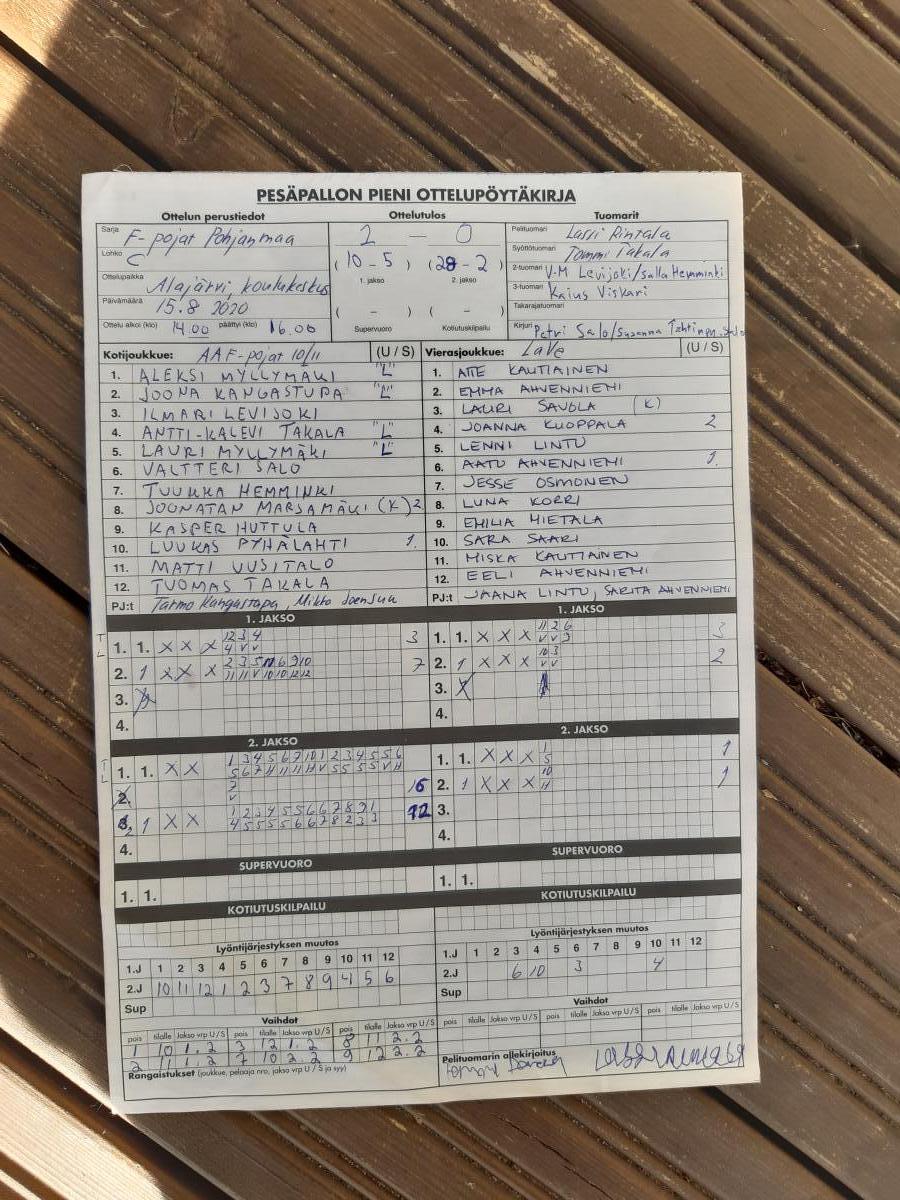 PESÄPALLON PIENI OTTELUPÖYTÄKIRJA
Ottelun perustiedot Ottelutulos Tuomarit
Sarja F-pojat Pohjanmaa
Lohko C
Ottelupaikka Alajärvi, koulukeskus
Päivämäärä 15.8 2020
Ottelu alkoi (klo) 14.00 päättyi (klo) 16.00
2 — 0
(10 - 5) (28 - 2)
1. jakso 2. jakso
( - ) ( - )
Supervuoro Kotiutuskilpailu
Pelituomari Lassi Rintala
Syöttötuomari Tommi Takala
2-tuomari V-M Levijoki/Salla Hemminki
3-tuomari Kaius Viskari
Takarajatuomari
Kirjuri Petri Salo/Susanna
Kotijoukkue: AA F-pojat 10/11 (U / S)
1. ALEKSI MYLLYMÄKI "L"
2. JOONA KANGASTUPA "L"
3. ILMARI LEVIJOKI
4. ANTTI-KALEVI TAKALA "L"
5. LAURI MYLLYMÄKI "L"
6. VALTTERI SALO
7. TUUKKA HEMMINKI
8. JOONATAN MARJAMÄKI (K) 2
9. KASPER HUTTULA
10. LUUKAS PYHÄLAHTI 1.
11. MATTI UUSITALO
12. TUOMAS TAKALA
PJ:t Tarmo Kangastupa, Mikko Joensuu
Vierasjoukkue: LaVe (U / S)
1. ATTE KAUTIAINEN
2. EMMA AHVENNIEMI
3. LAURI SAVOLA (K)
4. JOANNA KUOPPALA 2
5. LENNI LINTU
6. AATU AHVENNIEMI 1.
7. JESSE OSMONEN
8. LUNA KORRI
9. EMILIA HIETALA
10. SARA SAARI
11. MISKA KAUTIAINEN
12. EELI AHVENNIEMI
PJ:t JAANA LINTU, SARITA AHVENNIEMI
1. JAKSO
T
L
1. 1. X X X 12 3 4 3
4 V V
2. 1 X X X 2 3 5 10 6 9 10 7
11 11 V 10 10 12 12
3.
4.
1. JAKSO
1. 1. X X X 11 2 6 3
V V 9
2. 1 X X X 10 3 2
V V
3.
4.
2. JAKSO
T
L
1. 1. X X 1 3 4 5 6 7 10 1 2 3 4 5 5 6
2. 7 16
V
2 1 X X 1 2 3 4 5 5 6 6 7 8 9 1 12
4 5 5 5 5 6 6 7 8 2 3 3
4.
2. JAKSO
1. 1. X X X 1 1
5
2. 1 X X X 10 1
11
3.
4.
SUPERVUORO
1. 1.
SUPERVUORO
1. 1.
KOTIUTUSKILPAILU
KOTIUTUSKILPAILU
Lyöntijärjestyksen muutos
1.J 1 2 3 4 5 6 7 8 9 10 11 12
2.J 10 11 12 1 2 3 7 8 9 4 5 6
Sup
Lyöntijärjestyksen muutos
1.J 1 2 3 4 5 6 7 8 9 10 11 12
2.J 6 10 3 4
Sup
Vaihdot
pois tilalle Jakso vrp U / S pois tilalle Jakso vrp U / S pois tilalle Jakso vrp U / S
1 10 1. 2 3 12 1. 2 8 11 2. 2
2 11 1. 2 7 10 2. 2 9 12 2. 2
Rangaistukset (joukkue, pelaaja nro, jakso vrp U / S ja syy)
Vaihdot
pois tilalle Jakso vrp U / S pois tilalle Jakso vrp U / S pois tilalle Jakso vrp U / S
Pelituomarin allekirjoitus